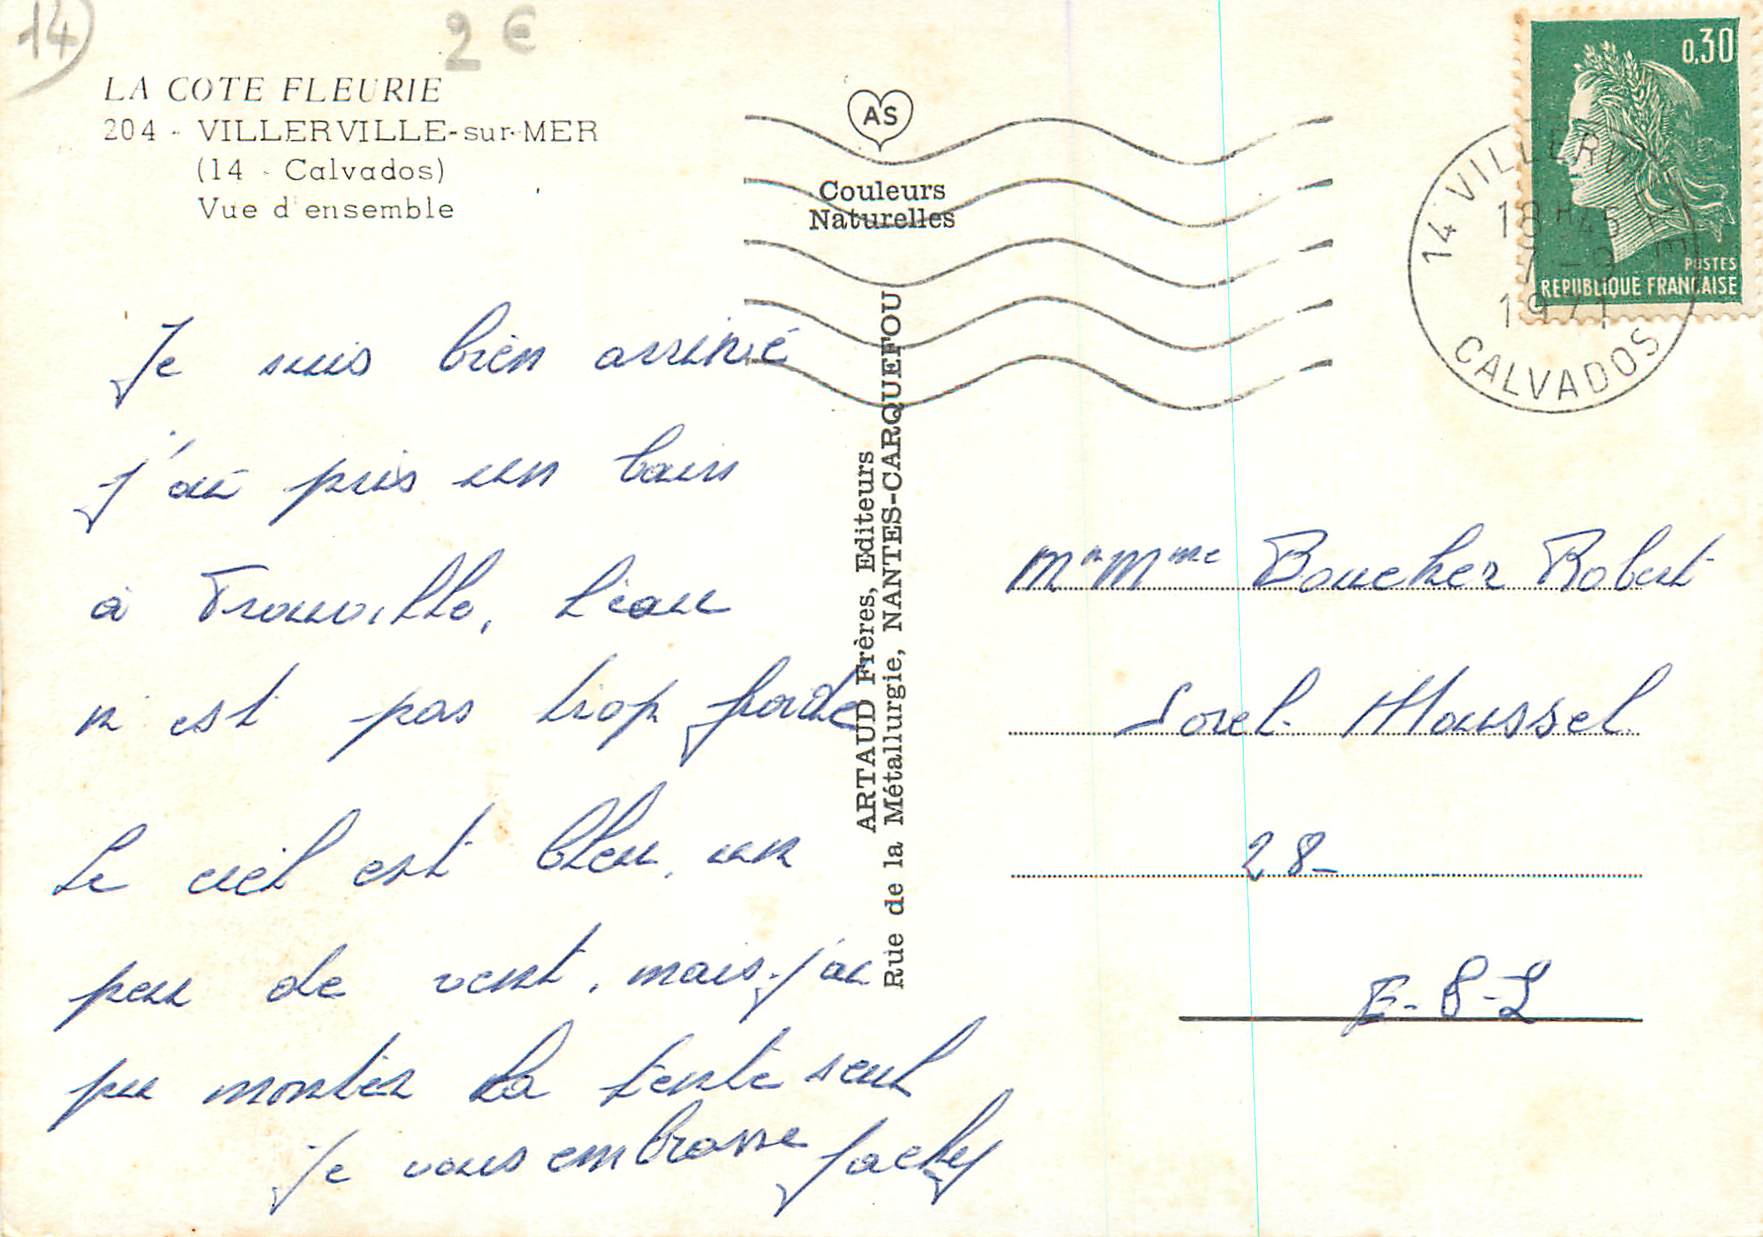 14
2 €
LA COTE FLEURIE
204 - VILLERVILLE-sur-MER
(14 - Calvados)
Vue d'ensemble
AS
Couleurs
Naturelles
0,30
POSTES
REPUBLIQUE FRANÇAISE
14 VILLERVILLE
18H45
7-9
1971
CALVADOS
Je suis bien arrivé
j'ai pris un bain
à Trouville, l'eau
n'est pas trop froide
Le ciel est bleu, un
peu de vent, mais j'ai
pu monter la tente seul
Je vous embrasse Jacky
ARTAUD Frères, Editeurs
Rue de la Métallurgie, NANTES-CARQUEFOU
Mr Mme Boucher Robert
Sorel-Moussel
28-
E-&-L